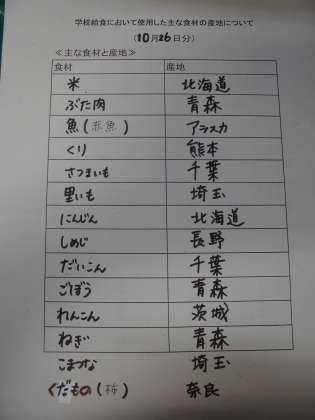 学校給食において使用した主な食材の産地について
(10月26日分)
≪主な食材と産地≫
食材 産地
米 北海道
ぶた肉 青森
魚(赤魚) アラスカ
くり 熊本
さつまいも 千葉
里いも 埼玉
にんじん 北海道
しめじ 長野
だいこん 千葉
ごぼう 青森
れんこん 茨城
ねぎ 青森
こまつな 埼玉
くだもの(柿) 奈良